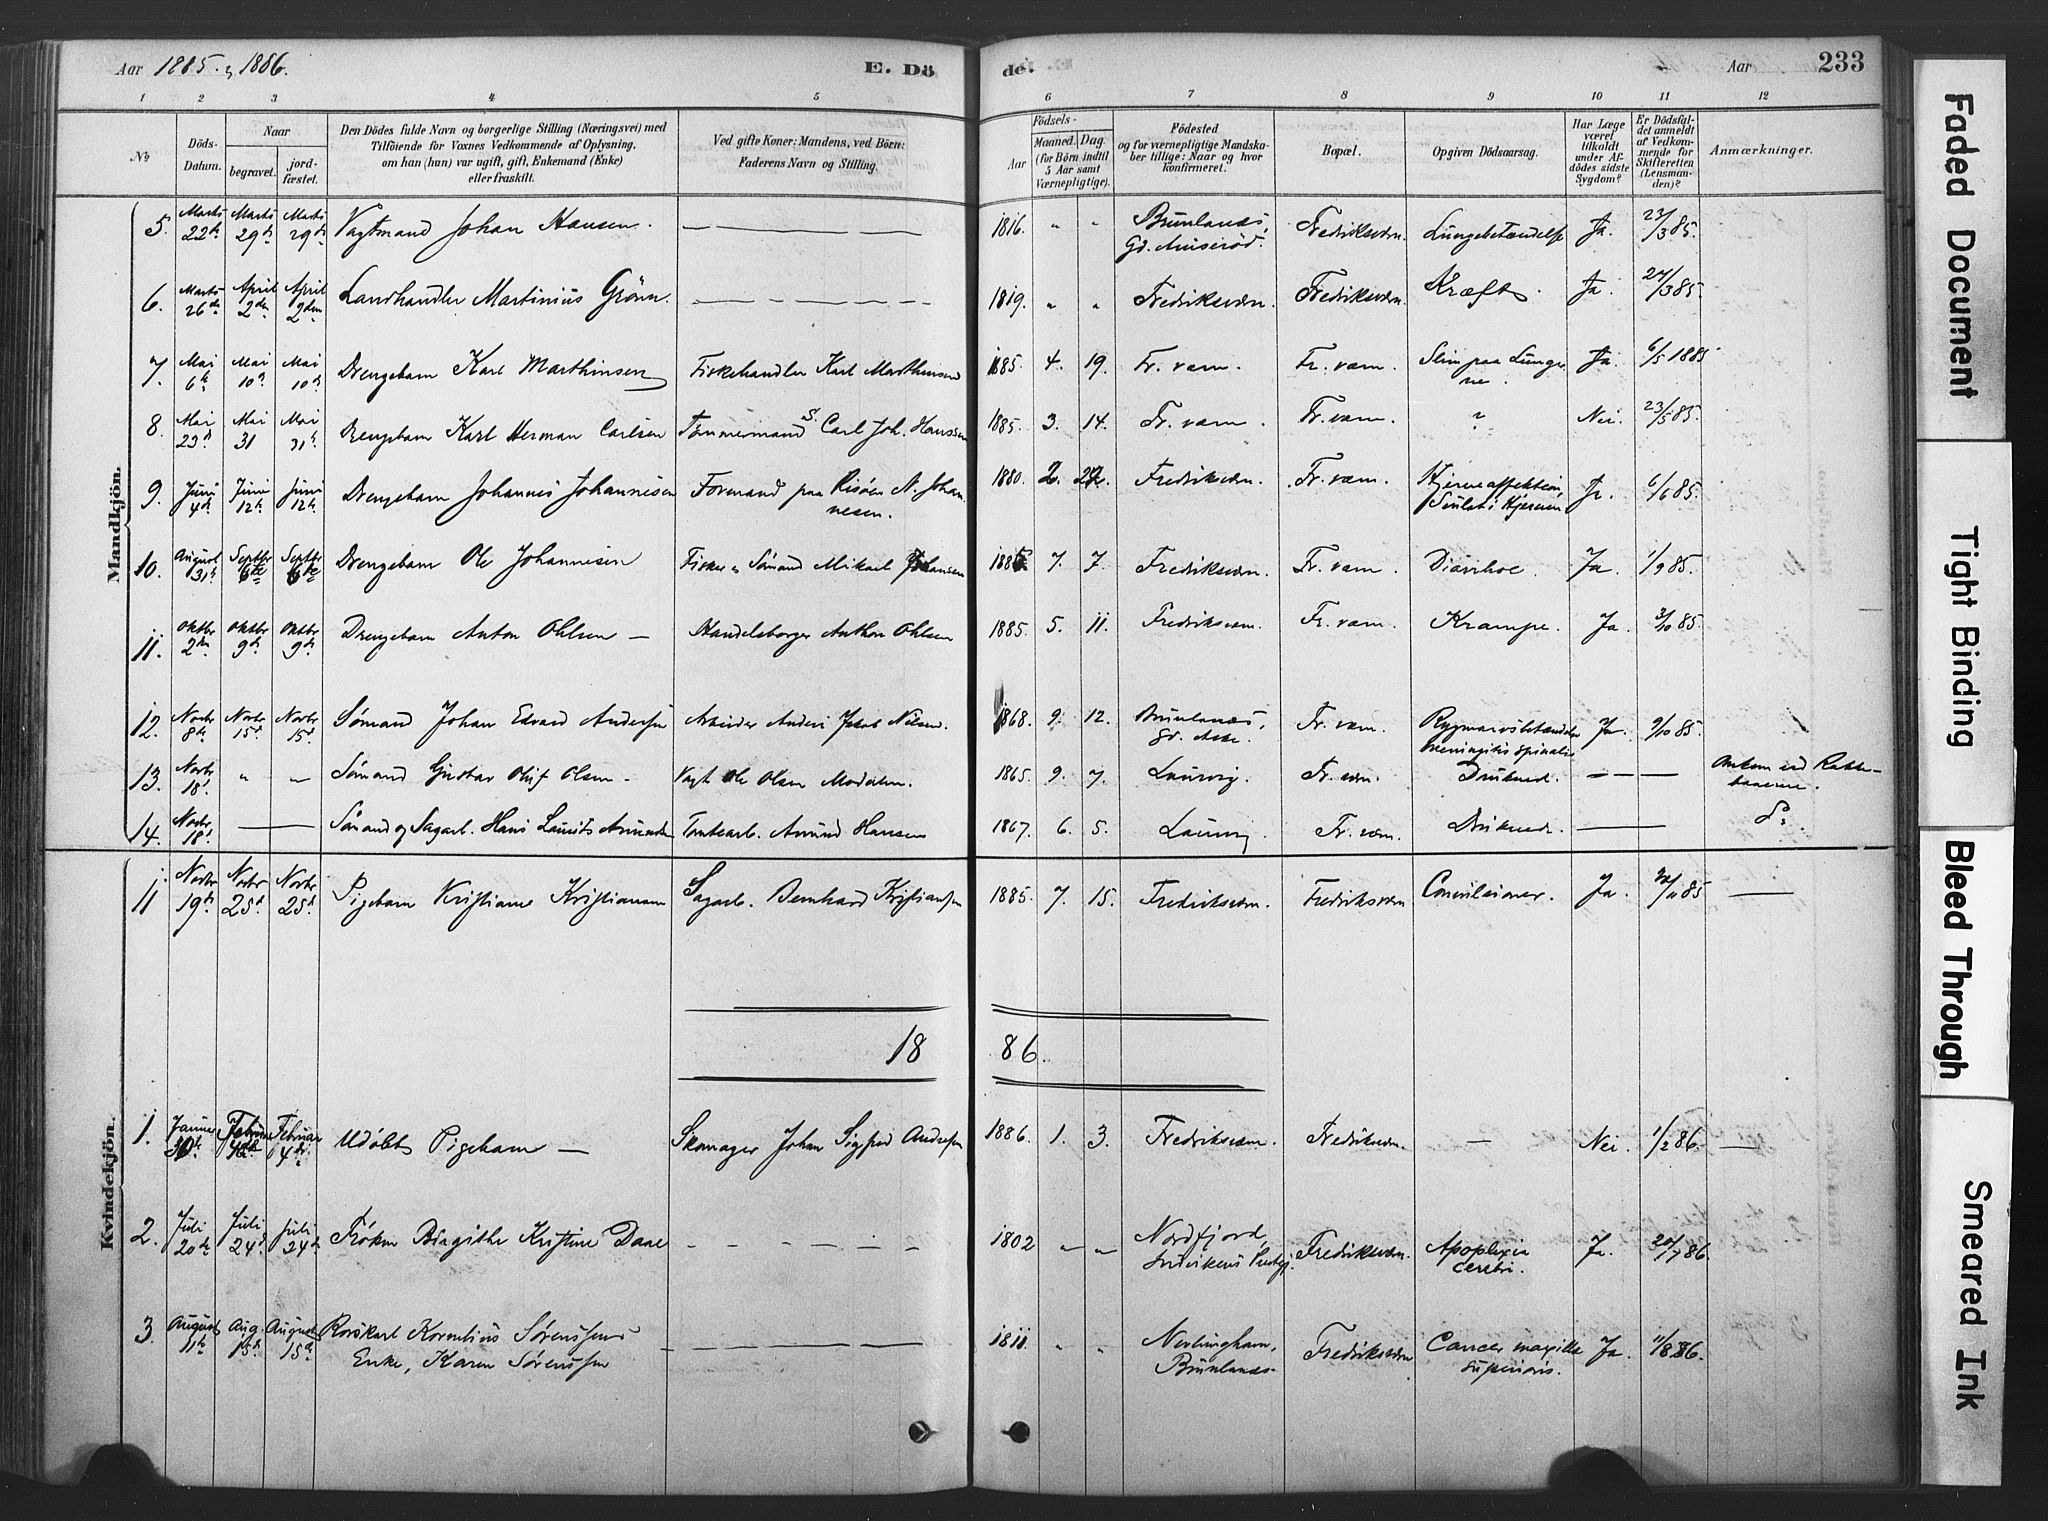 Aar 1885 & 1886.
E. Dö
de.
Aar
233
1 2 3 4 5 6 7 8 9 10 11 12
№
Döds-
Datum.
Naar
begravet.
jord-
fæstet.
Den Dödes fulde Navn og borgerlige Stilling (Næringsvei) med
Tilföiende for Voxnes Vedkommende af Oplysning,
om han (hun) var ugift, gift, Enkemand (Enke)
eller fraskilt.
Ved gifte Koner: Mandens, ved Börn:
Faderens Navn og Stilling.
Födsels-
Aar
Maaned.
Dag.
(for Börn indtil
5 Aar samt
Værnepligtige).
Födested
og for værnepligtige Mandska-
ber tillige: Naar og hvor
konfirmeret.
Bopæl.
Opgiven Dödsaarsag.
Har Læge
været
tilkaldt
under Af-
dödes sidste
Sygdom?
Er Dödsfal-
det anmeldt
af Vedkom-
mende for
Skifteretten
(Lensman-
den)?
Anmærkninger.
Mandkjön.
5. Marts 22de Marts 29de Marts 29de Vagtmand Johan Hansen. 1816. " " Brunlanæs, Fredriksværn. Lungebetændelse Ja. 23/3 85.
6. Marts 26de April 2den April 2den Landhandler Martinius Grörn. 1819. " " Fredriksværn. Fredriksværn. Kræft. Ja. 27/3 85.
7. Mai 6te Mai 10de Mai 10de Drengebarn Karl Marthinsen Fiskehandler Karl Marthinsen 1885. 4. 19. Fr. værn. Fr. værn. Slim paa Lunger- Ja. 6/5 1885
ne.
8. Mai 23de Mai 31 Mai 31te Drengebarn Karl Herman Carlsen Tømmermand S. Carl Joh. Hanssen 1885. 3. 14. Fr. værn. Fr. værn. ? Nei. 23/5 85.
9. Juni 4de Juni 12te Juni 12te Drengebarn Johannes Johannesen Formand paa Risøen N. Johan- 1880. 2. Fredriksværn. Fr. værn. Hjerneaffektion, Ja. 6/6 85.
nesen.
10. August 31te Septbr 6te Septbr 6te Drengebarn Ole Johannesen Fisker & Sømand Mikael Johansen 1885. 7. 7. Fredriksværn. Fr. værn. Diarrhoe. Ja. 1/9 85.
11. Oktbr 2den Oktbr 9de Oktbr 9de Drengebarn Anton Ohlsen — Handelsborger Anthon Ohlsen 1885. 5. 11. Fredriksværn. Fr. værn. Krampe. Ja. 3/10 85.
12. Novbr 8de Novbr 15de Novbr 15de Sømand Johan Edvard Andersen Arbeider Anders Jakob Nilsen. 1868. 9. 12. Brunlanæs, Fr. værn. Rygmarvsbetændelse Ja. 9/10 85.
meningitis spinalis
13. Novbr 18de " " Sømand Gustav Oluf Olsen. Vagt Ole Olsen 1865. 9. 7. Laurvig. Fr. værn. Druknede. — — Omkom ved Rakke-
baaerne.
14. Novbr. 18de — Sømand og Sagarb. Hans Laurits Amundsen Tomtearb. Amund Hansen 1867. 6. 5. Laurvig. Fr. værn. Druknede. — Do.
11 Novbr 19de Novbr 25de Novbr 25de Pigebarn Kristiane Kristiansen Sagarb. Bernhard Kristiansen 1885. 7. 15. Fredriksværn. Fredriksværn Convulsioner. Ja. —
1886.
Kvindekjön.
1. Januar Februar 4de Februar 4de Udøbt Pigebarn — Skomager Johan Sigfred Andersen 1886. 1. 3. Fredriksværn. Fredriksværn. — Nei. 1/2 86. —
2. Juli 20de Juli 24de Juli 24de Frøken Birgithe Kristine Daae 1802 " " Nordfjord, Fredriksværn. Apoplexia Ja. 20/7 86
Indvikens Prestgj. cerebri.
3. August 11te Aug. 15de August 15de Rorskarl Kornelius Sørenssens 1811. " " Nevlinghavn, Fredriksværn Cancer maxille Ja. 11/8 86.
Enke, Karen Sørenssen Brunlanæs superioris.
Faded Document
Tight Binding
Bleed Through
Smeared Ink